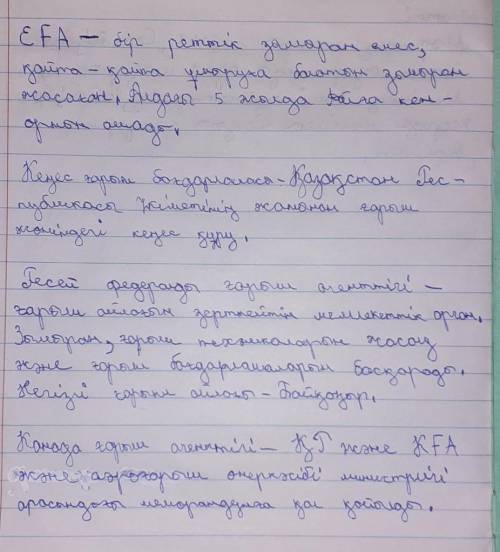 ЕҒА – бір реттік зымыран емес,
қайта-қайта ұшыруға болатын зымыран
жасаған. Алдағы 5 жылда Айға кен-
орнын ашады.
Кеңес ғарыш бағдарламасы – Қазақстан Рес-
публикасы Үкіметінің жанынан ғарыш
жөніндегі кеңес құру.
Ресей федералды ғарыш агенттігі –
ғарыш айлағын зерттейтін мемлекеттік орган.
Зымыран, ғарыш техникаларын жасау
және ғарыш бағдарламаларын басқарады.
Негізгі ғарыш айлағы – Байқоңыр.
Канада ғарыш агенттігі – ҚР және КҒА
және аэроғарыш өнеркәсібі министрлігі
арасындағы меморандумға қол қойылды.